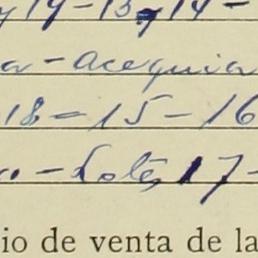 y 14-13 y 14-
a - acequia
18 - 15 - 16
o - Lotes 17 -
io de venta de la